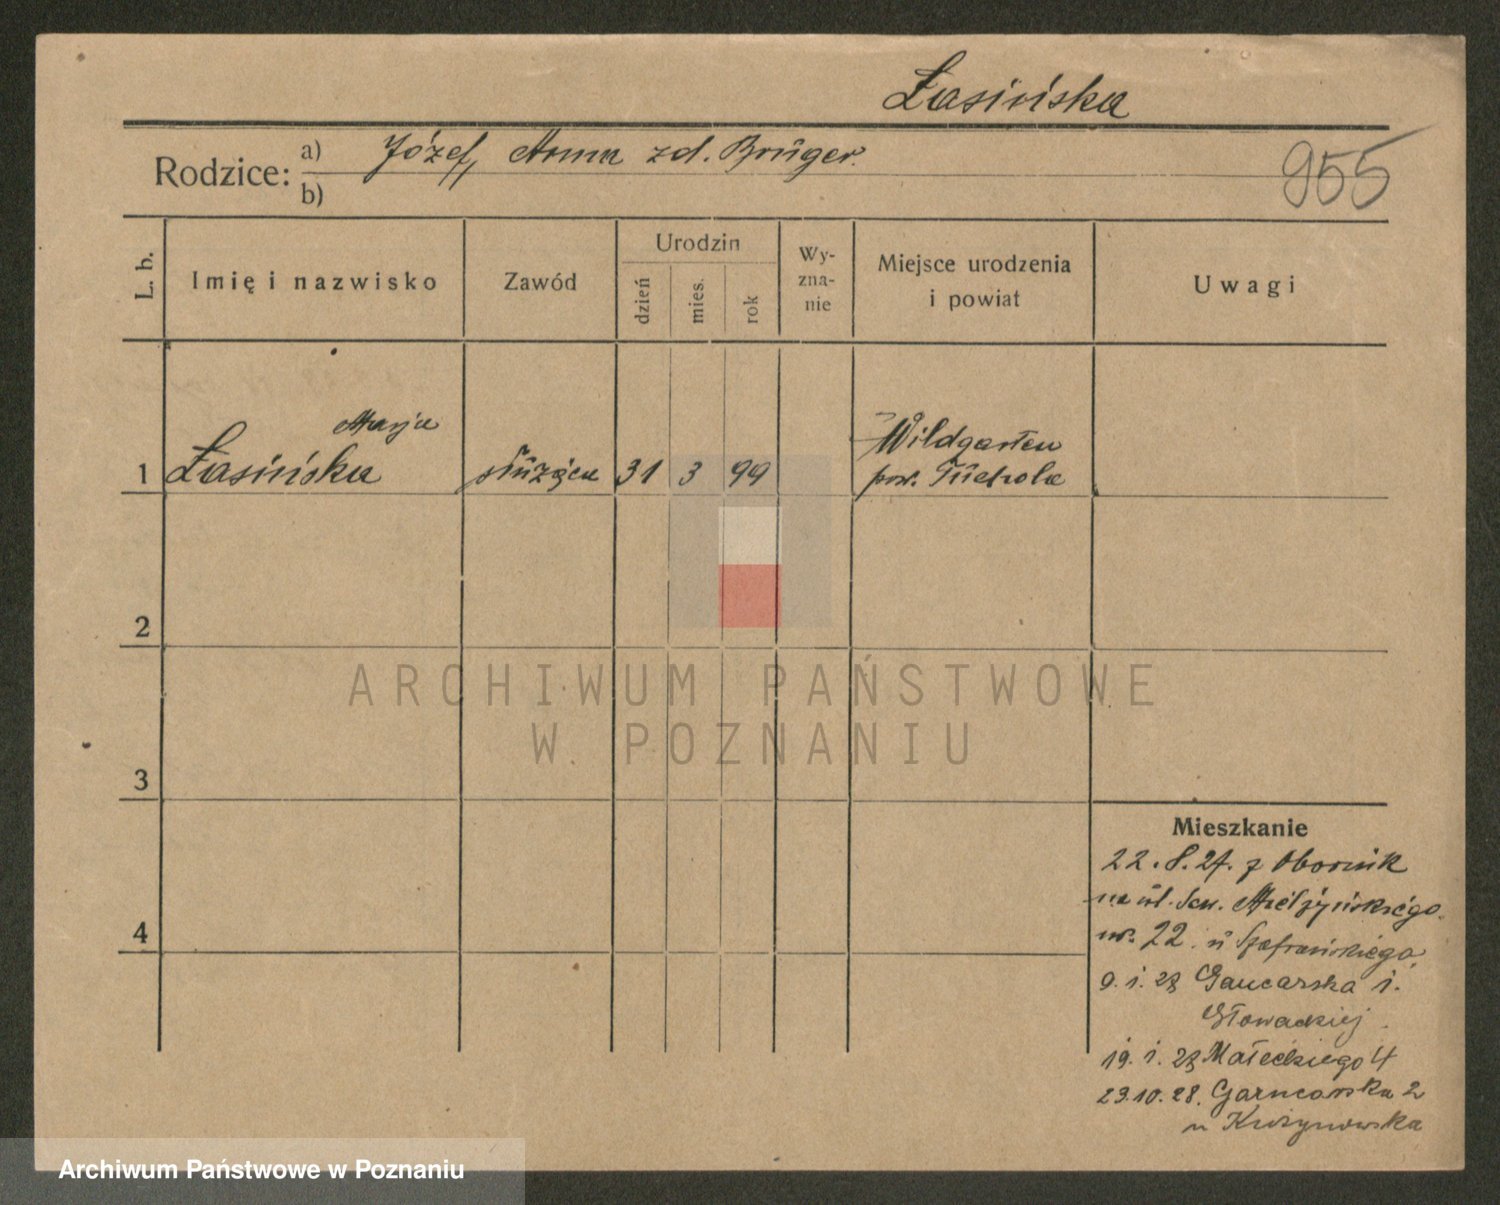 Łasińska
Rodzice: a) Józef, Anna zd. Brüger.
b)
955
L. b.
Imię i nazwisko
Zawód
Urodzin
dzień
mies.
rok
Wy-
zna-
nie
Miejsce urodzenia
i powiat
Uwagi
Marja
1 Łasińska służąca 31 3 99
Wildgarten
pow. Tuchola
2
3
4
ARCHIWUM PAŃSTWOWE
W POZNANIU
Mieszkanie
22.8.27. z Obornik
na ul. Sew. Mielżyńskiego
nr. 22. u Szafrańskiego.
9.1.28 Garncarska 1.
Słowackiej
19.1.28 Małeckiego 4
23.10.28. Garncarska 2
u
Archiwum Państwowe w Poznaniu